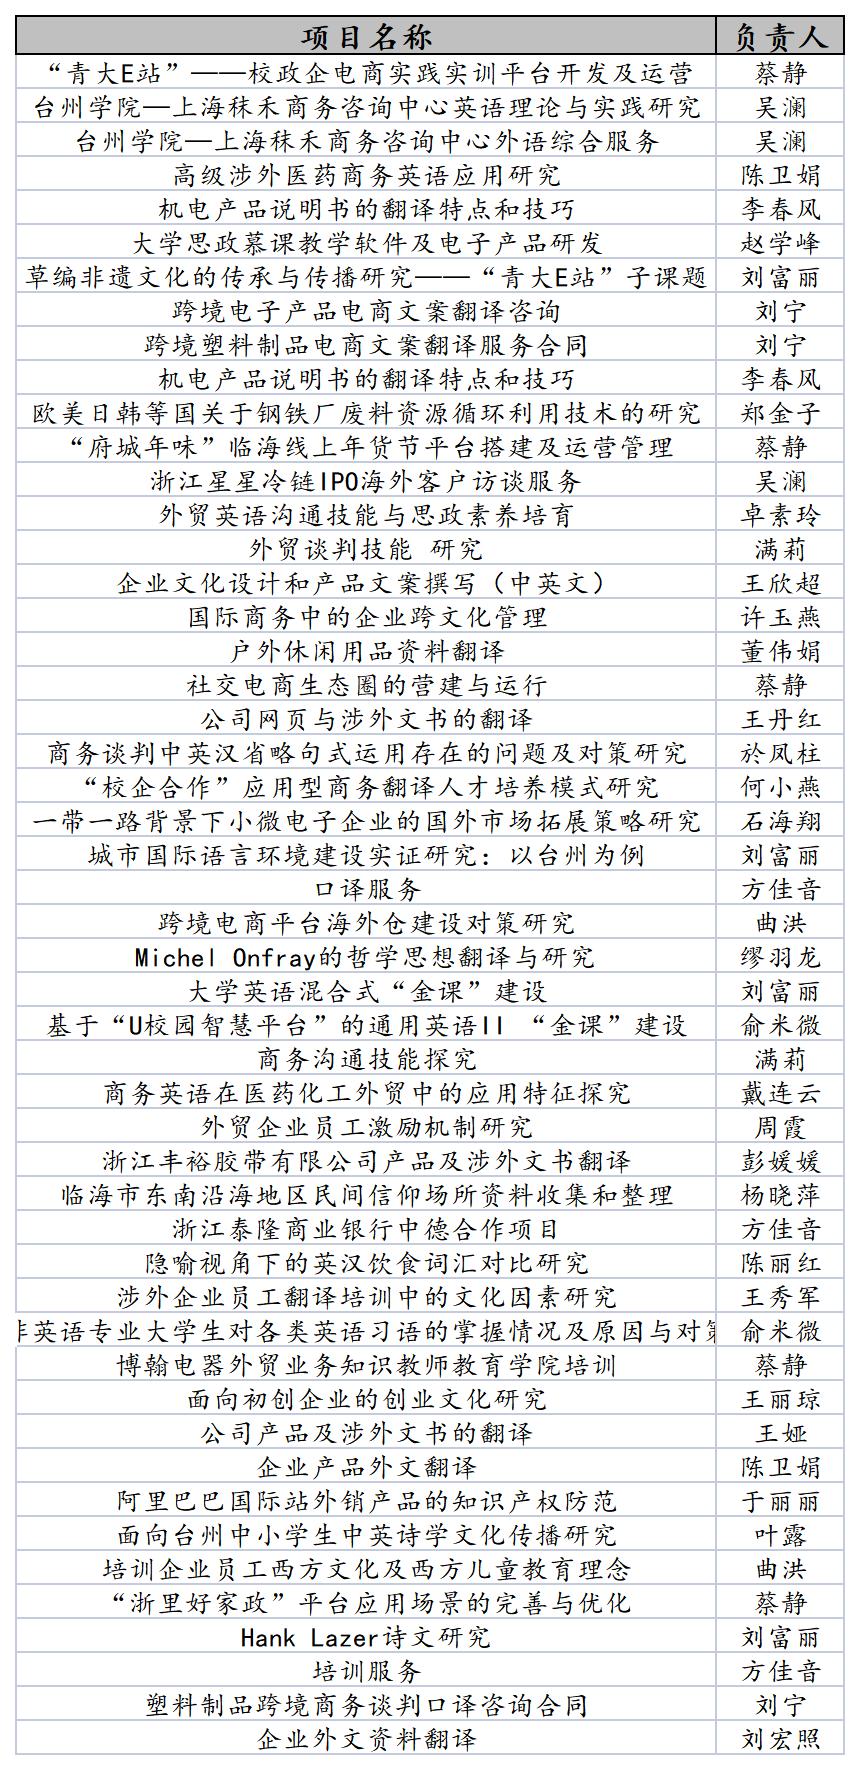 项目名称 负责人
“青大E站”——校政企电商实践实训平台开发及运营 蔡静
台州学院—上海秣禾商务咨询中心英语理论与实践研究 吴澜
台州学院—上海秣禾商务咨询中心外语综合服务 吴澜
高级涉外医药商务英语应用研究 陈卫娟
机电产品说明书的翻译特点和技巧 李春风
大学思政慕课教学软件及电子产品研发 赵学峰
草编非遗文化的传承与传播研究——“青大E站”子课题 刘富丽
跨境电子产品电商文案翻译咨询 刘宁
跨境塑料制品电商文案翻译服务合同 刘宁
机电产品说明书的翻译特点和技巧 李春风
欧美日韩等国关于钢铁厂废料资源循环利用技术的研究 郑金子
“府城年味”临海线上年货节平台搭建及运营管理 蔡静
浙江星星冷链IPO海外客户访谈服务 吴澜
外贸英语沟通技能与思政素养培育 卓素玲
外贸谈判技能 研究 满莉
企业文化设计和产品文案撰写（中英文） 王欣超
国际商务中的企业跨文化管理 许玉燕
户外休闲用品资料翻译 董伟娟
社交电商生态圈的营建与运行 蔡静
公司网页与涉外文书的翻译 王丹红
商务谈判中英汉省略句式运用存在的问题及对策研究 於凤柱
“校企合作”应用型商务翻译人才培养模式研究 何小燕
一带一路背景下小微电子企业的国外市场拓展策略研究 石海翔
城市国际语言环境建设实证研究：以台州为例 刘富丽
口译服务 方佳音
跨境电商平台海外仓建设对策研究 曲洪
Michel Onfray的哲学思想翻译与研究 缪羽龙
大学英语混合式“金课”建设 刘富丽
基于“U校园智慧平台”的通用英语II “金课”建设 俞米微
商务沟通技能探究 满莉
商务英语在医药化工外贸中的应用特征探究 戴连云
外贸企业员工激励机制研究 周霞
浙江丰裕胶带有限公司产品及涉外文书翻译 彭媛媛
临海市东南沿海地区民间信仰场所资料收集和整理 杨晓萍
浙江泰隆商业银行中德合作项目 方佳音
隐喻视角下的英汉饮食词汇对比研究 陈丽红
涉外企业员工翻译培训中的文化因素研究 王秀军
非英语专业大学生对各类英语习语的掌握情况及原因与对策 俞米微
博翰电器外贸业务知识教师教育学院培训 蔡静
面向初创企业的创业文化研究 王丽琼
公司产品及涉外文书的翻译 王娅
企业产品外文翻译 陈卫娟
阿里巴巴国际站外销产品的知识产权防范 于丽丽
面向台州中小学生中英诗学文化传播研究 叶露
培训企业员工西方文化及西方儿童教育理念 曲洪
“浙里好家政”平台应用场景的完善与优化 蔡静
Hank Lazer诗文研究 刘富丽
培训服务 方佳音
塑料制品跨境商务谈判口译咨询合同 刘宁
企业外文资料翻译 刘宏照